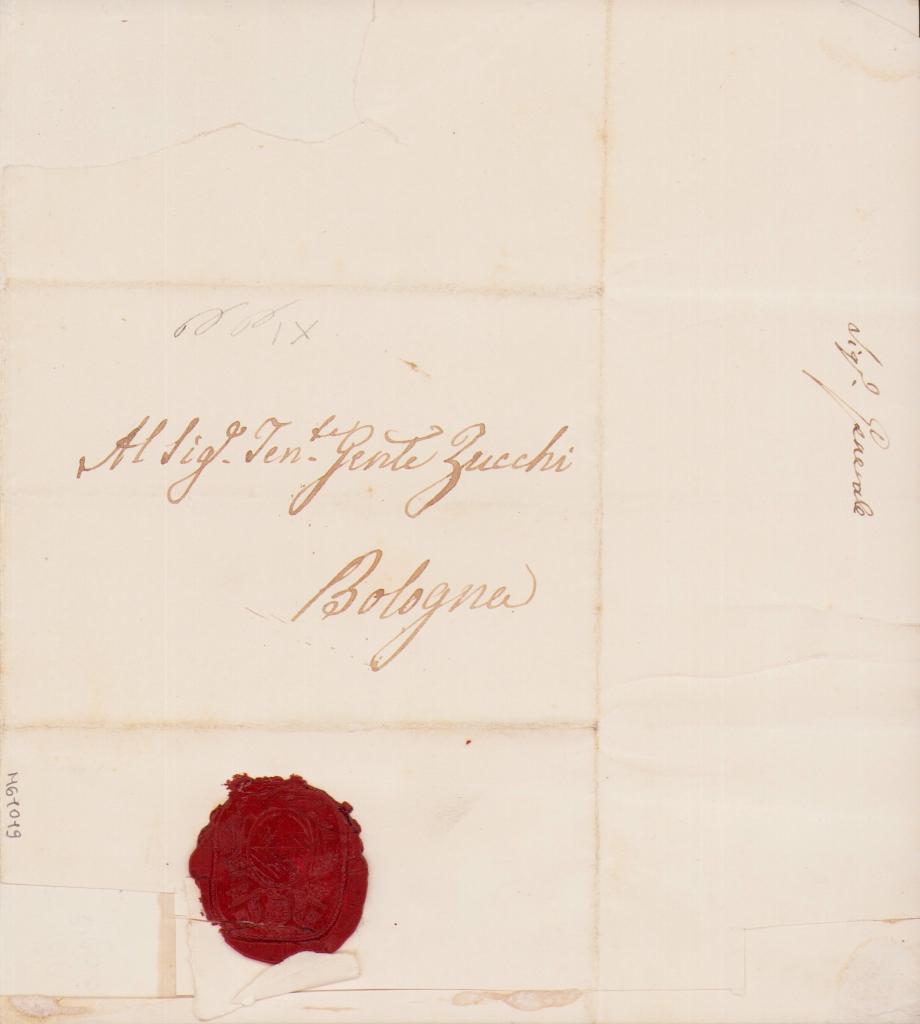 IX
Al Sigr. Tente. Gente Zucchi
Bologna
Sigr. Generale
M61019